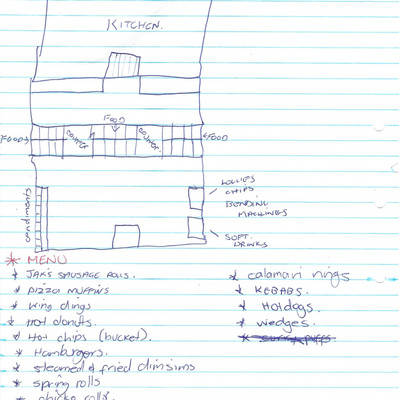 KITCHEN.
FOOD
FOOD
COUNTER
COUNTER
FOOD
LOLLIES
CHIPS
BENDING
MACHINES
SOFT
DRINKS
condiments
* MENU
* JAK'S SAUSAGE ROLLS.
* PIZZA MUFFINS
* wing dings
* Hot donuts.
* Hot chips (bucket).
* Hamburgers.
* steamed & fried dimsims
* spring rolls
* chicko rolls.
* calamari rings
* KEBABS.
* Hotdogs.
* wedges.